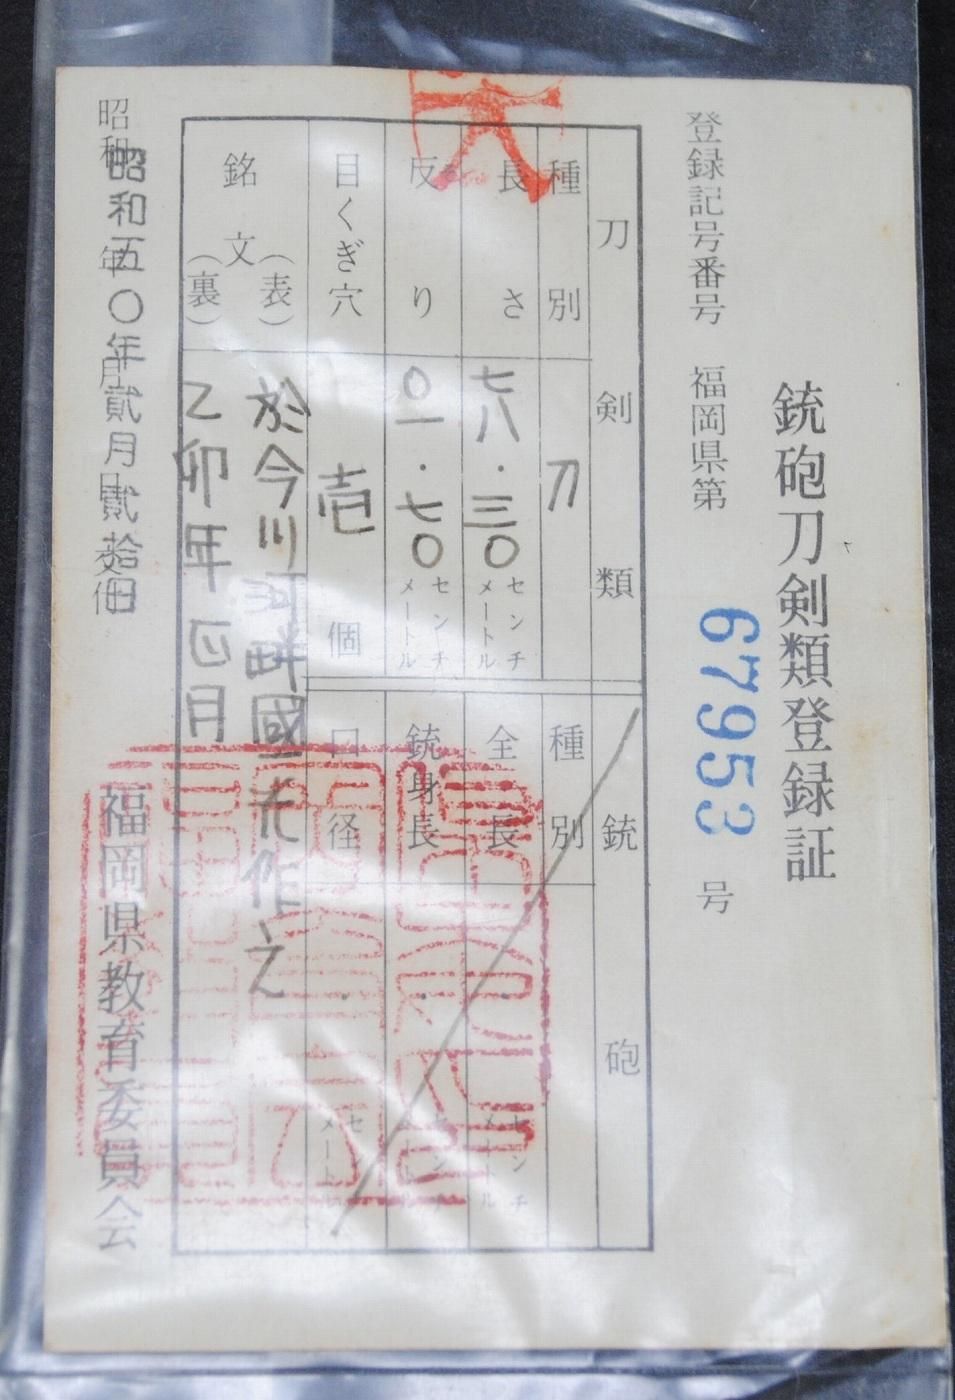 銃砲刀剣類登録証
登録記号番号 福岡県第 67953 号
刀剣類
種別 刀
長さ 七八.三〇 センチメートル
反り 〇一.七〇 センチメートル
目くぎ穴 壱 個
銘文 (表) 於今川河畔國光作之
(裏) 乙卯年正月
銃砲
種別
全長 . センチメートル
銃身長 . センチメートル
口径 . センチメートル
昭和 年 月 日 交付
昭和五〇年貳月貳拾日
福岡県教育委員会
大